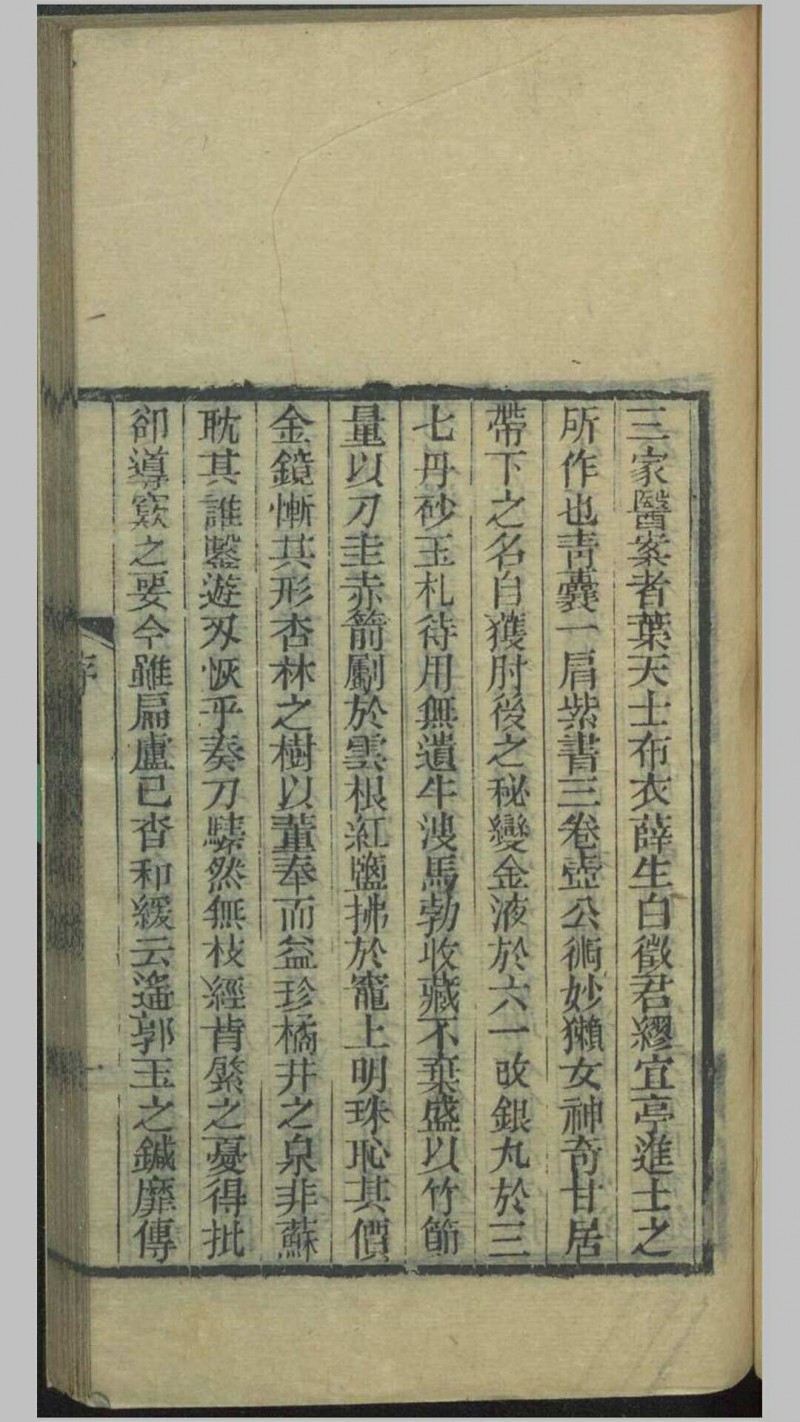 三家醫案者葉天士布衣薛生白徵君繆宜亭進士之
所作也青囊一肩紫書三卷壺公術妙獺女神奇甘居
帶下之名自獲肘後之秘變金液於六一改銀丸於三
七丹砂玉札待用無遺牛溲馬勃收藏不棄盛以竹節
量以刀圭赤箭劚於雲根紅鹽拂於竈上明珠恥其價
金鏡慚其形杏林之樹以董奉而益珍橘井之泉非蘇
耽其誰鑿遊刃恢乎奏刀騞然無枝經肯綮之憂得批
郤導窾之要今雖扁盧已杳和緩云遙郭玉之鍼靡傳
序
一